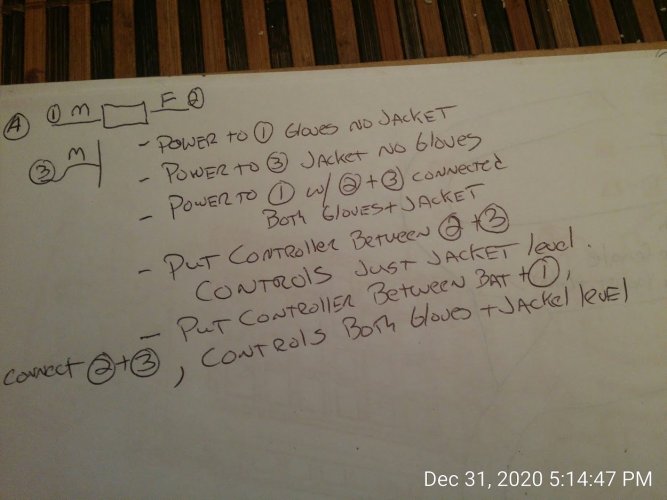 A ① M F ②
③ M
- POWER TO ① Gloves NO JACKET
- POWER TO ③ JACKET NO Gloves
- POWER TO ① W/ ②+③ CONNECTED
BOTH Gloves+JACKET
- PUT CONTROLLER BETWEEN ②+③
CONTROLS JUST JACKET level.
- PUT CONTROLLER BETWEEN BAT+①,
CONNECT ②+③, CONTROLS BOTH Gloves+JACKET lEVEl
Dec 31, 2020 5:14:47 PM